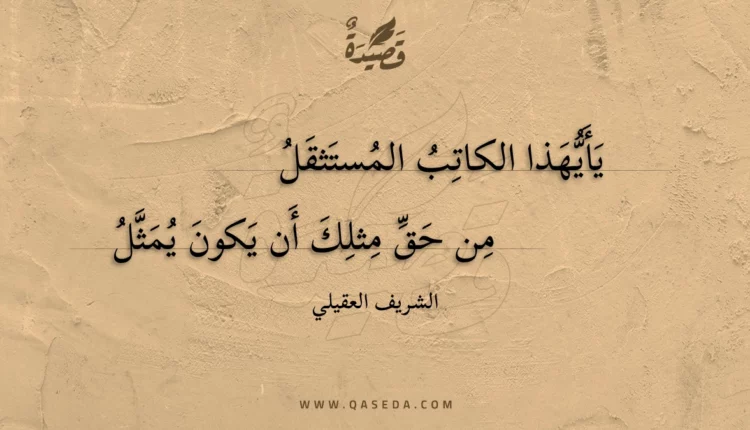 قَصِيدَةٌ
يَأَيُّهَذا الكاتِبُ المُستَثقَلُ
مِن حَقِّ مِثلِكَ أَن يَكونَ يُمَثَّلُ
الشريف العقيلي
WWW.QASEDA.COM